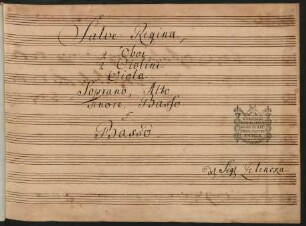 Salve Regina,
2 Oboi
2 Violini
Viola
Soprano, Alto
Tenore, Basso
e
Basso
Del Sigl. Zelencka